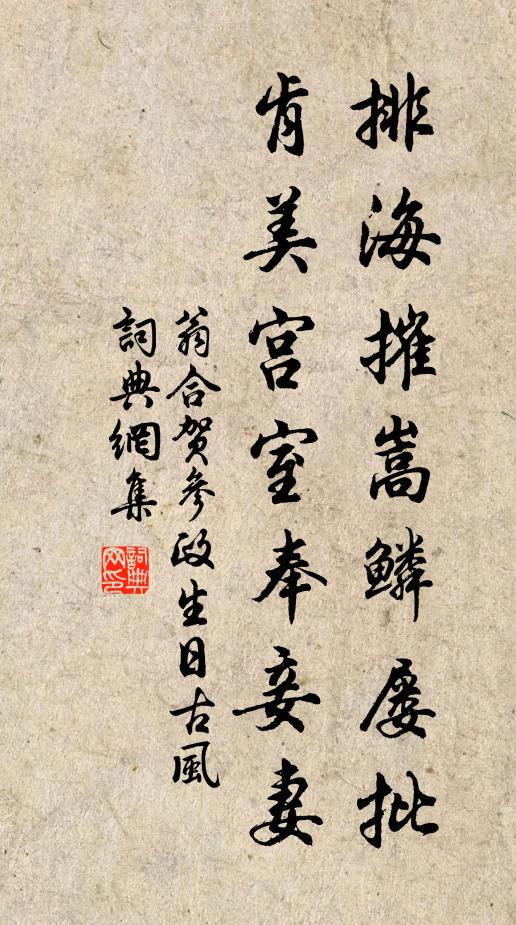 排海摧嵩鳞屡批
肯美宫室奉妾妻
翁合贺參政生日古風
詞典網集
詞典網印